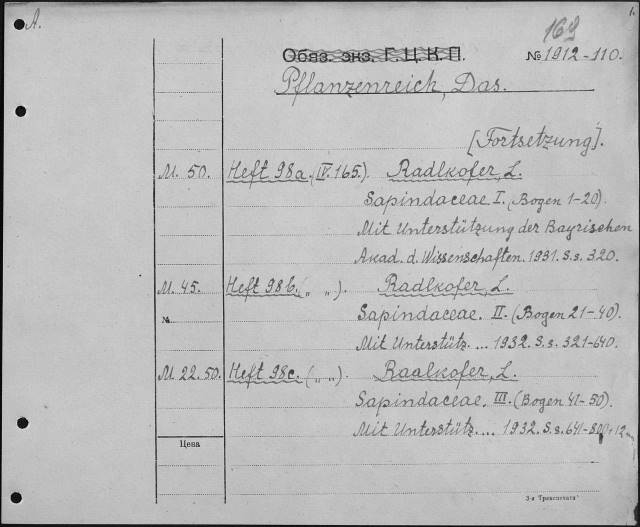 A.
169
1.
Обяз. экз. Г. Ц. К. П.
№ 1912-110.
Pflanzenreich, Das.
[Fortsetzung].
M. 50. Heft 98a. (IV. 165.) Radlkofer, L.
Sapindaceae I. (Bogen 1-20).
Mit Unterstützung der Bayrischen
Akad. d. Wissenschaften. 1931. S.s. 320.
M. 45. Heft 98b. („ „). Radlkofer, L.
№ Sapindaceae. II. (Bogen 21-40).
Mit Unterstütz. ... 1932. S.s. 321-640.
M 22.50. Heft 98c. („ „). Raalkofer, L.
Sapindaceae. III. (Bogen 41-50).
Mit Unterstütz. ... 1932. S.s. 641-800+12
Цена
3-я Трансpечать